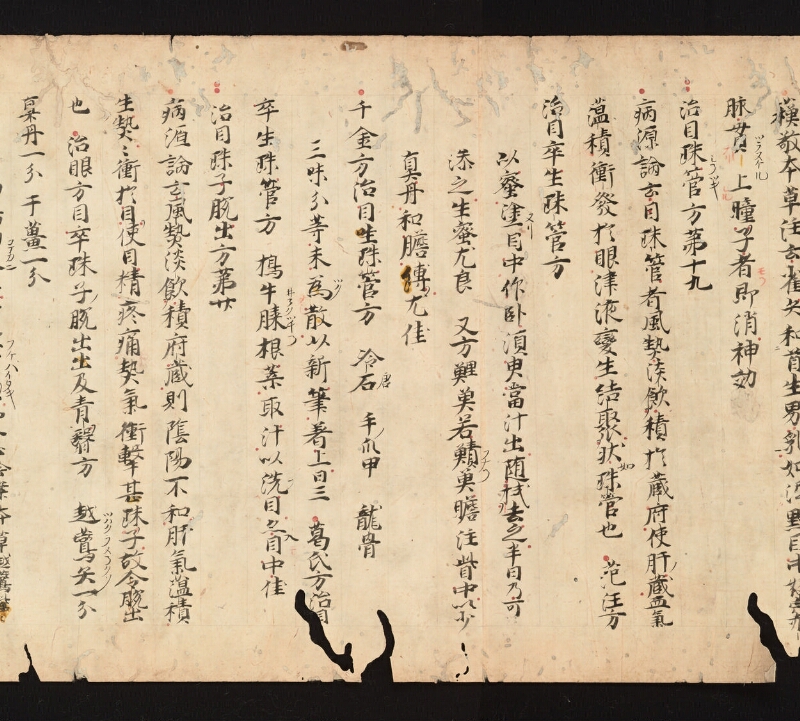 漢敬本草注云雀矢和首生男乳如泥點目中
脉貫上瞳子者即消神効
治目珠管方第十九
病源論云目珠管者風熱淡飲積於蔵府使肝蔵血氣
薀積衝發於眼津液變生結聚状如珠管也 范汪方
治目卒生珠管方
以蜜塗目中作卧須臾當汁出随拭去之半日乃可
添之生蜜尤良 又方鯉魚若鰿魚瞻注眥中以少
真丹和膽傅尤佳
千金方治目生珠管方 冷石 手爪甲 龍骨
三味分等末為散以新筆著上日三 葛氏方治目
卒生珠管方 搗牛膝根葉取汁以洗目入目中佳
治目珠子脱出方第廿
病源論云風熱淡飲積府蔵則陰陽不和肝氣薀積
生熱々衝於目使目精疼痛熱氣衝撃甚珠子故令脱出
也 治眼方目卒珠子脱出出及青翳方 越鷰矢一分
真丹一分 干薑一分